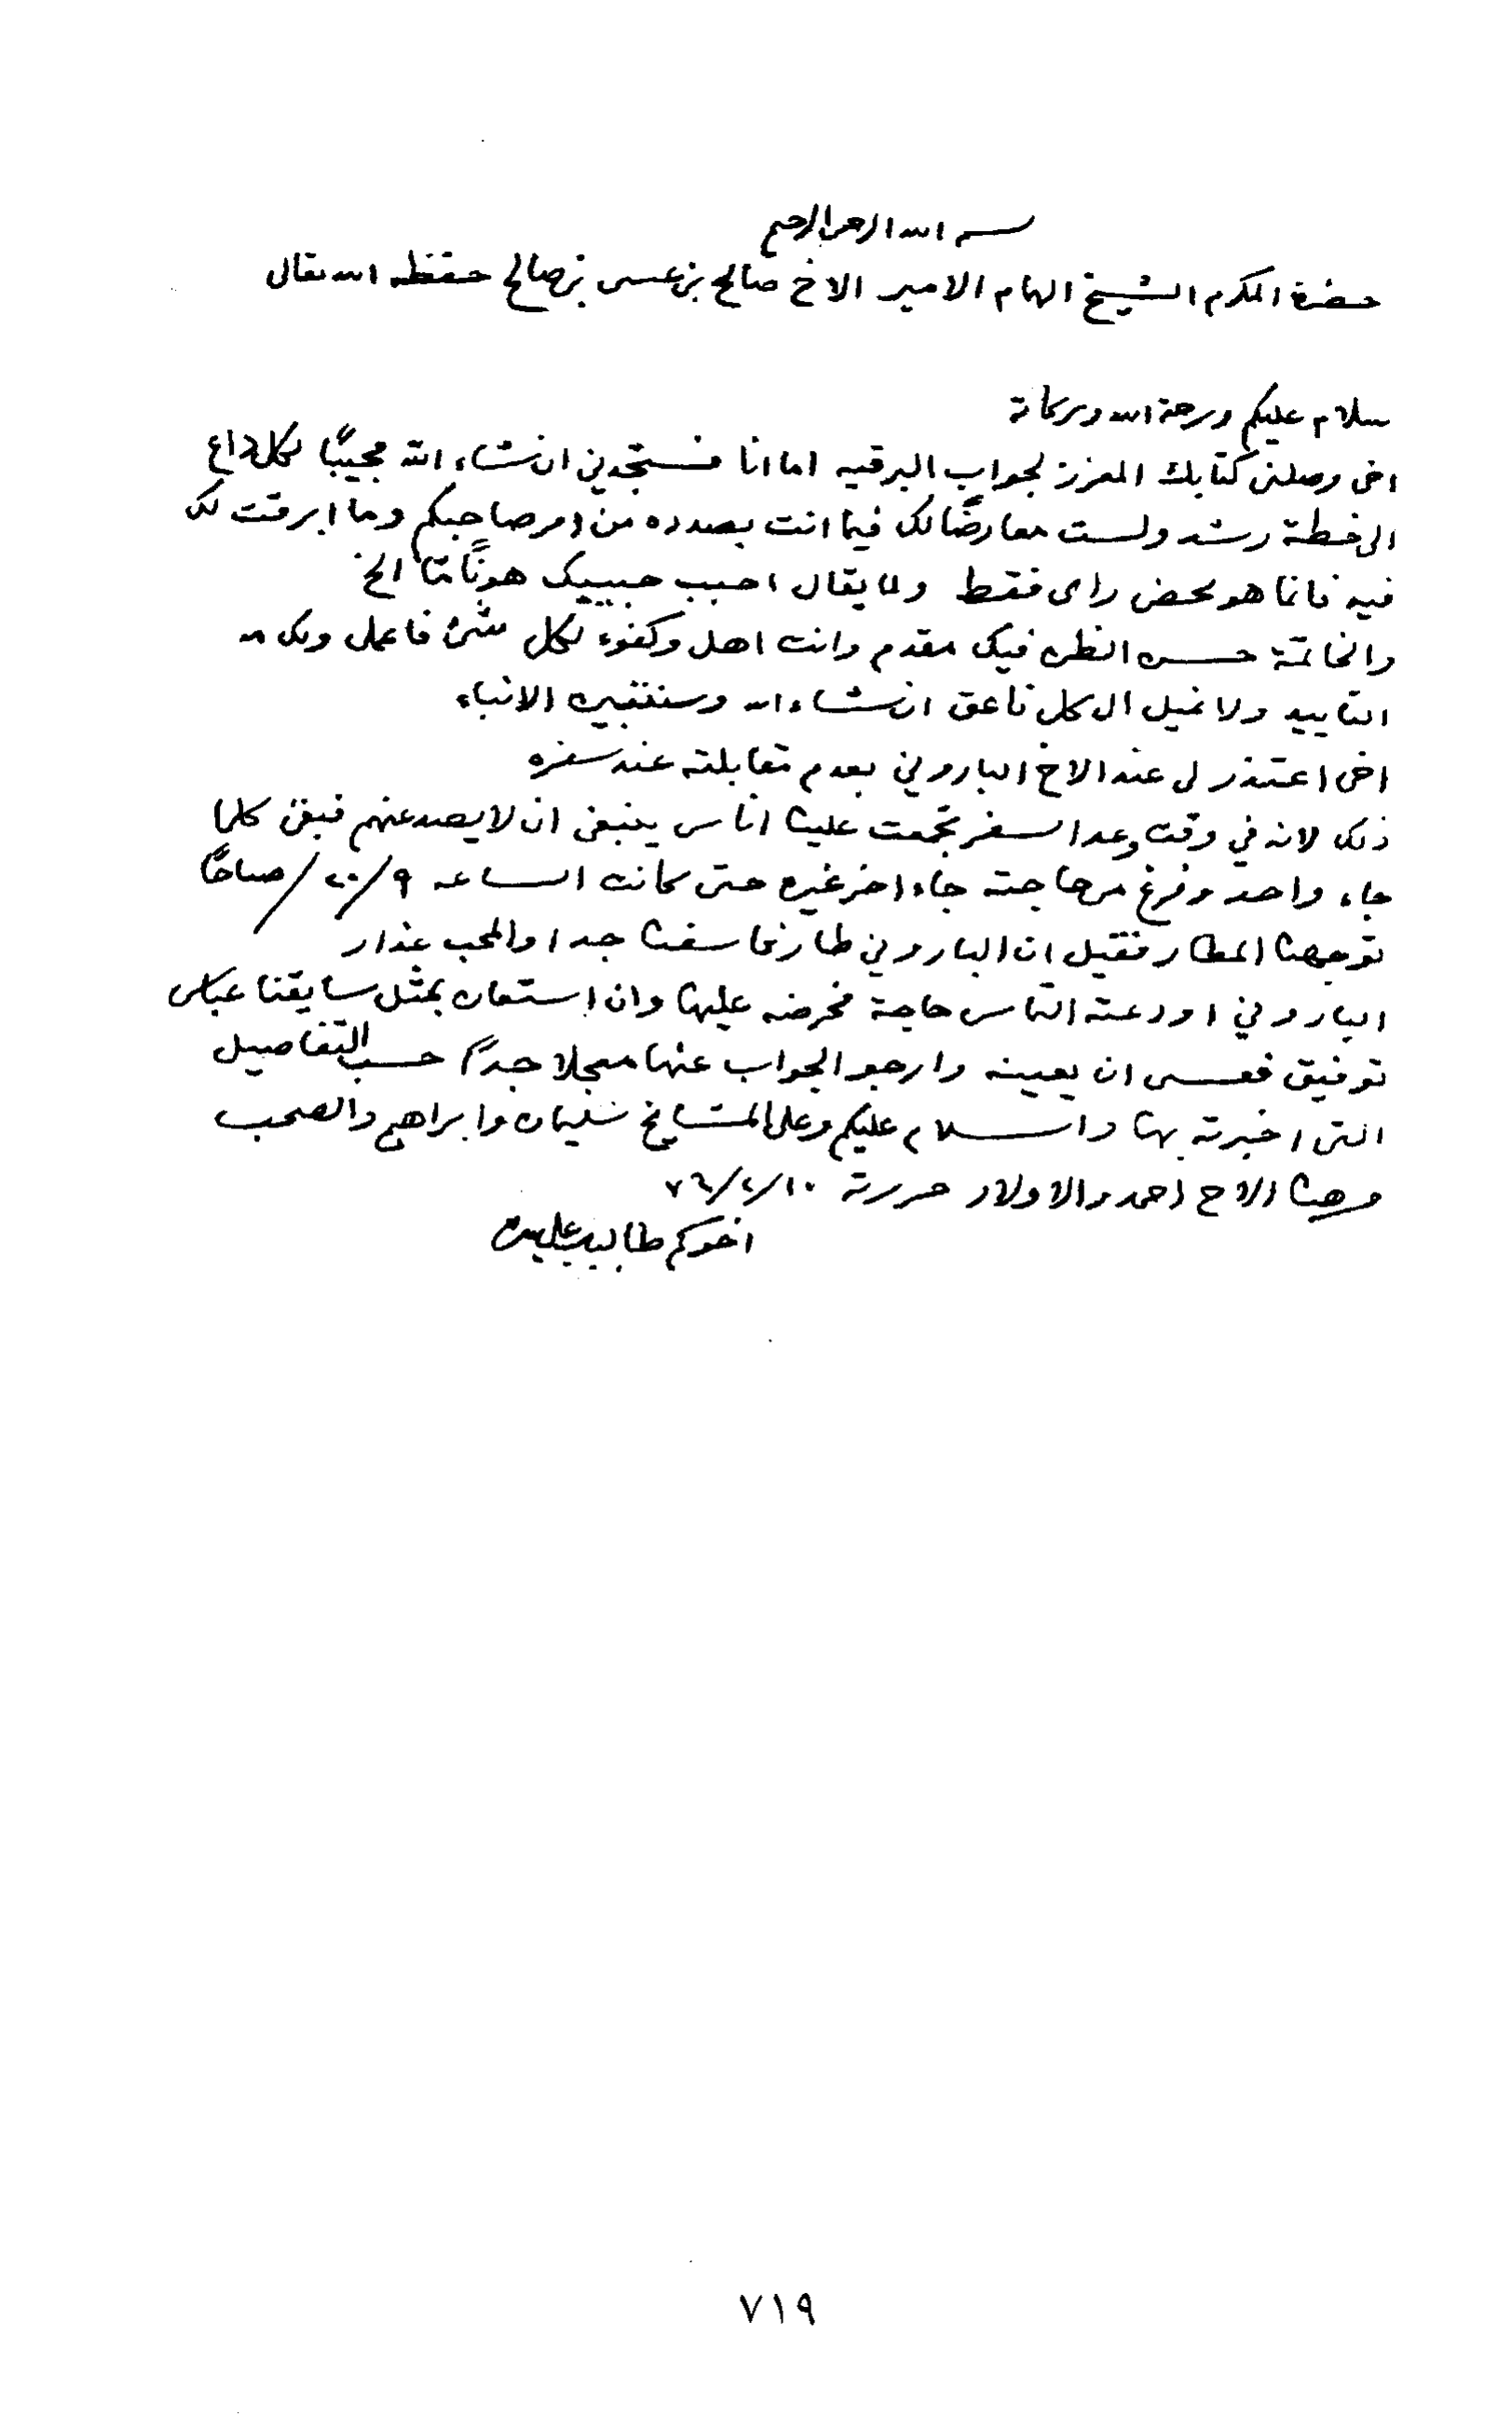 بسم الله الرحمن الرحيم
حضرة المكرم الشيخ الهمام الامير الاخ صالح بن عيسى بن صالح حفظه الله تعالى
سلام عليكم ورحمة الله وبركاته
اخي وصلني كتابك المعزز لجواب البرقيه اما انا فستجدني انشاء الله مجيبًا لكل داع
الى خطة رشد ولست معارضًا لك فيما انت بصدده من امر صاحبكم وما ابرقت لك
فيه فانما هو محض راى فقط ولما يقال احبب حبيبك هونًا مّا الخ
والخاتمة حسن الظن فيك مقدم وانت اهل وكفوء لكل شئ فاعمل ولك منا
التاييد ولا نميل الى كل ناعق انشاء الله وسننتبين الانباء
اخي اعتذر لى عند الاخ الباروني بعدم مقابلته عند سفره
ذلك لانه في وقت وعد السفر تجمعت علينا اناس ينبغي ان لا يصد عنهم فبقى كلما
جاء واحد وفرغ من حاجته جاء اخر غيره حتى كانت الساعه ٩/٢٠/ صباحًا
توجهنا المطار فقيل ان الباروني طار فاسفنا جدا والمحب عذار
الباروني اودعته الناس حاجة فحرضه عليها وان استعان بمثل سايقنا عباس
توفيق فعسى ان يعينه وارجو الجواب عنها معجلا جدًا حسب التفاصيل
التى اخبرته بها والسلام عليكم وعلى المشايخ سليمان وابراهيم والصحب
ومنا الاخ احمد والاولاد حررته ٧٦/٢/١٠
اخوكم طالب بن علي
٧١٩